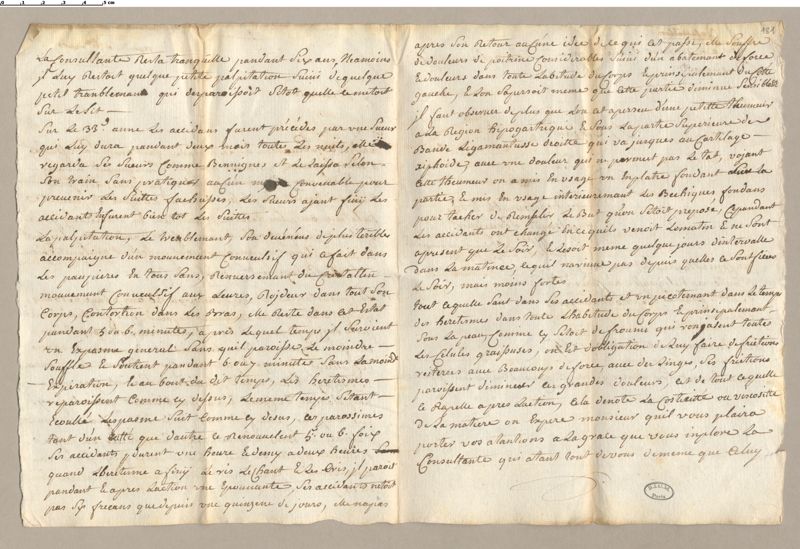 La Consultante Resta tranquille pandant Six ans, Neamoins
il Luy Restoit quelque petite palpitation Suivi de quelque
petit tranblemant qui disparoissoit Sitot quelle ce metoit
Sur le Lit
Sur Le 33e anne Les accidans furent précédes par vne Sueur
qui Luy dura pandant deux mois toutes Les nuits, elle
regarda Ses Sueurs Comme Bennignes et Le Laissa Selon
Son train Sans pratiquer aucun convenable pour
prevenir Les Suittes facheuses, Les Sueurs ajant finij Les
accidants furent bien tot Les Suittes
La palpitation, Le tranblemant, Son devenües de plus terribles
accompaigne dun mouvement Convulsif qui ce fait dans
Les paupieres en tous Sans, Renversemant du Cristallin
mouvemant Convulsif aux Levres, Roideur dans tout Son
Corps, Contortion dans Les Bras, elle Reste dans cet Estat
pandant 5 ou 6 minutes, aprés Lequel temps jl Survient
vn Expasme géneral Sans quil paroisse Le moindre
Souffle Le Soutient pandant 6 ou 7 minutte Sans La moindre
Expiration, Le au bout du dit temps, Les heretismes
reparoissent Comme cy dessus, Le meme temps Estant
Ecoullé Lespasme Suit Comme cy desus, ces paroxismes
tant dun cotté que dautre ce Renouvelent 5 ou 6 foix
Ses accidants durent vne heure Edemy a deux heures
quand Lheretisme a finij Le ris Le Chant E Les Cris, jl paroit
pandant E apres Laction vne Epouvante Ses accidants netoit
pas Sij frecans que depuis vne quinzene de jours, elle na pas
181
apres Son Retour aucune idee de ce qui cet passé, elle Souffre
de douleurs de poitrine considerables Suivi dun abatement de force
E douleurs dans toute Labitude du Corps E principalement du Côté
gauche, E Lon Saperçoit meme que cette partie diminue Sensiblement
jl faut observer de plus que Lon cet aperseu d'une petitte thumeur
a La Region hipogastrique E Sous La partie Superieure de
Bande Ligamanteusse droitte qui va jusques au Cartilage
xiphoïde avec vne douleur qui ne permet pas Le tat, voyant
Cette thumeur on a mis En vsage vn Emplatre fondant Sur La
partie, E mis En vsage interieuremant Les Bechiques fondans
pour tacher de Remplir Le But quon Setoit propose, Cepandant
Les accidants ont changé En ce quils venoit Le matin E ne Sont
a present que Le Soir, E Le Soit meme quelque jours dintervalle
dans La matinée, Ce qui narrive pas depuis quelles ce Sont fixees
Le Soir, mais moins fortes
tout ce quelle Sent dans Ses accidants et vn picotemant dans Le temps
des heretismes dans toute Lhabitude du Corps E principalemant
Sous La peau Comme Cy Setoit de froumi qui rongasent toutes
Les Celules graisseuses, on Est dobligation de Luy faire de frictions
reiterées avec Beaucoups de force, avec des Linges, Ses frictions
paroissent diminuer Ces grandes douleurs, cet de tout Ce quelle
Ce Rapelle apres Laction, Cela denote La Costicité ou viscosité
de La matiere on Espere monsieur quil vous plaira
porter vos atantions a La grace que vous inplore La
Consultante qui atant tout de vous de meme que Celuy
B.I.U.M.
Paris